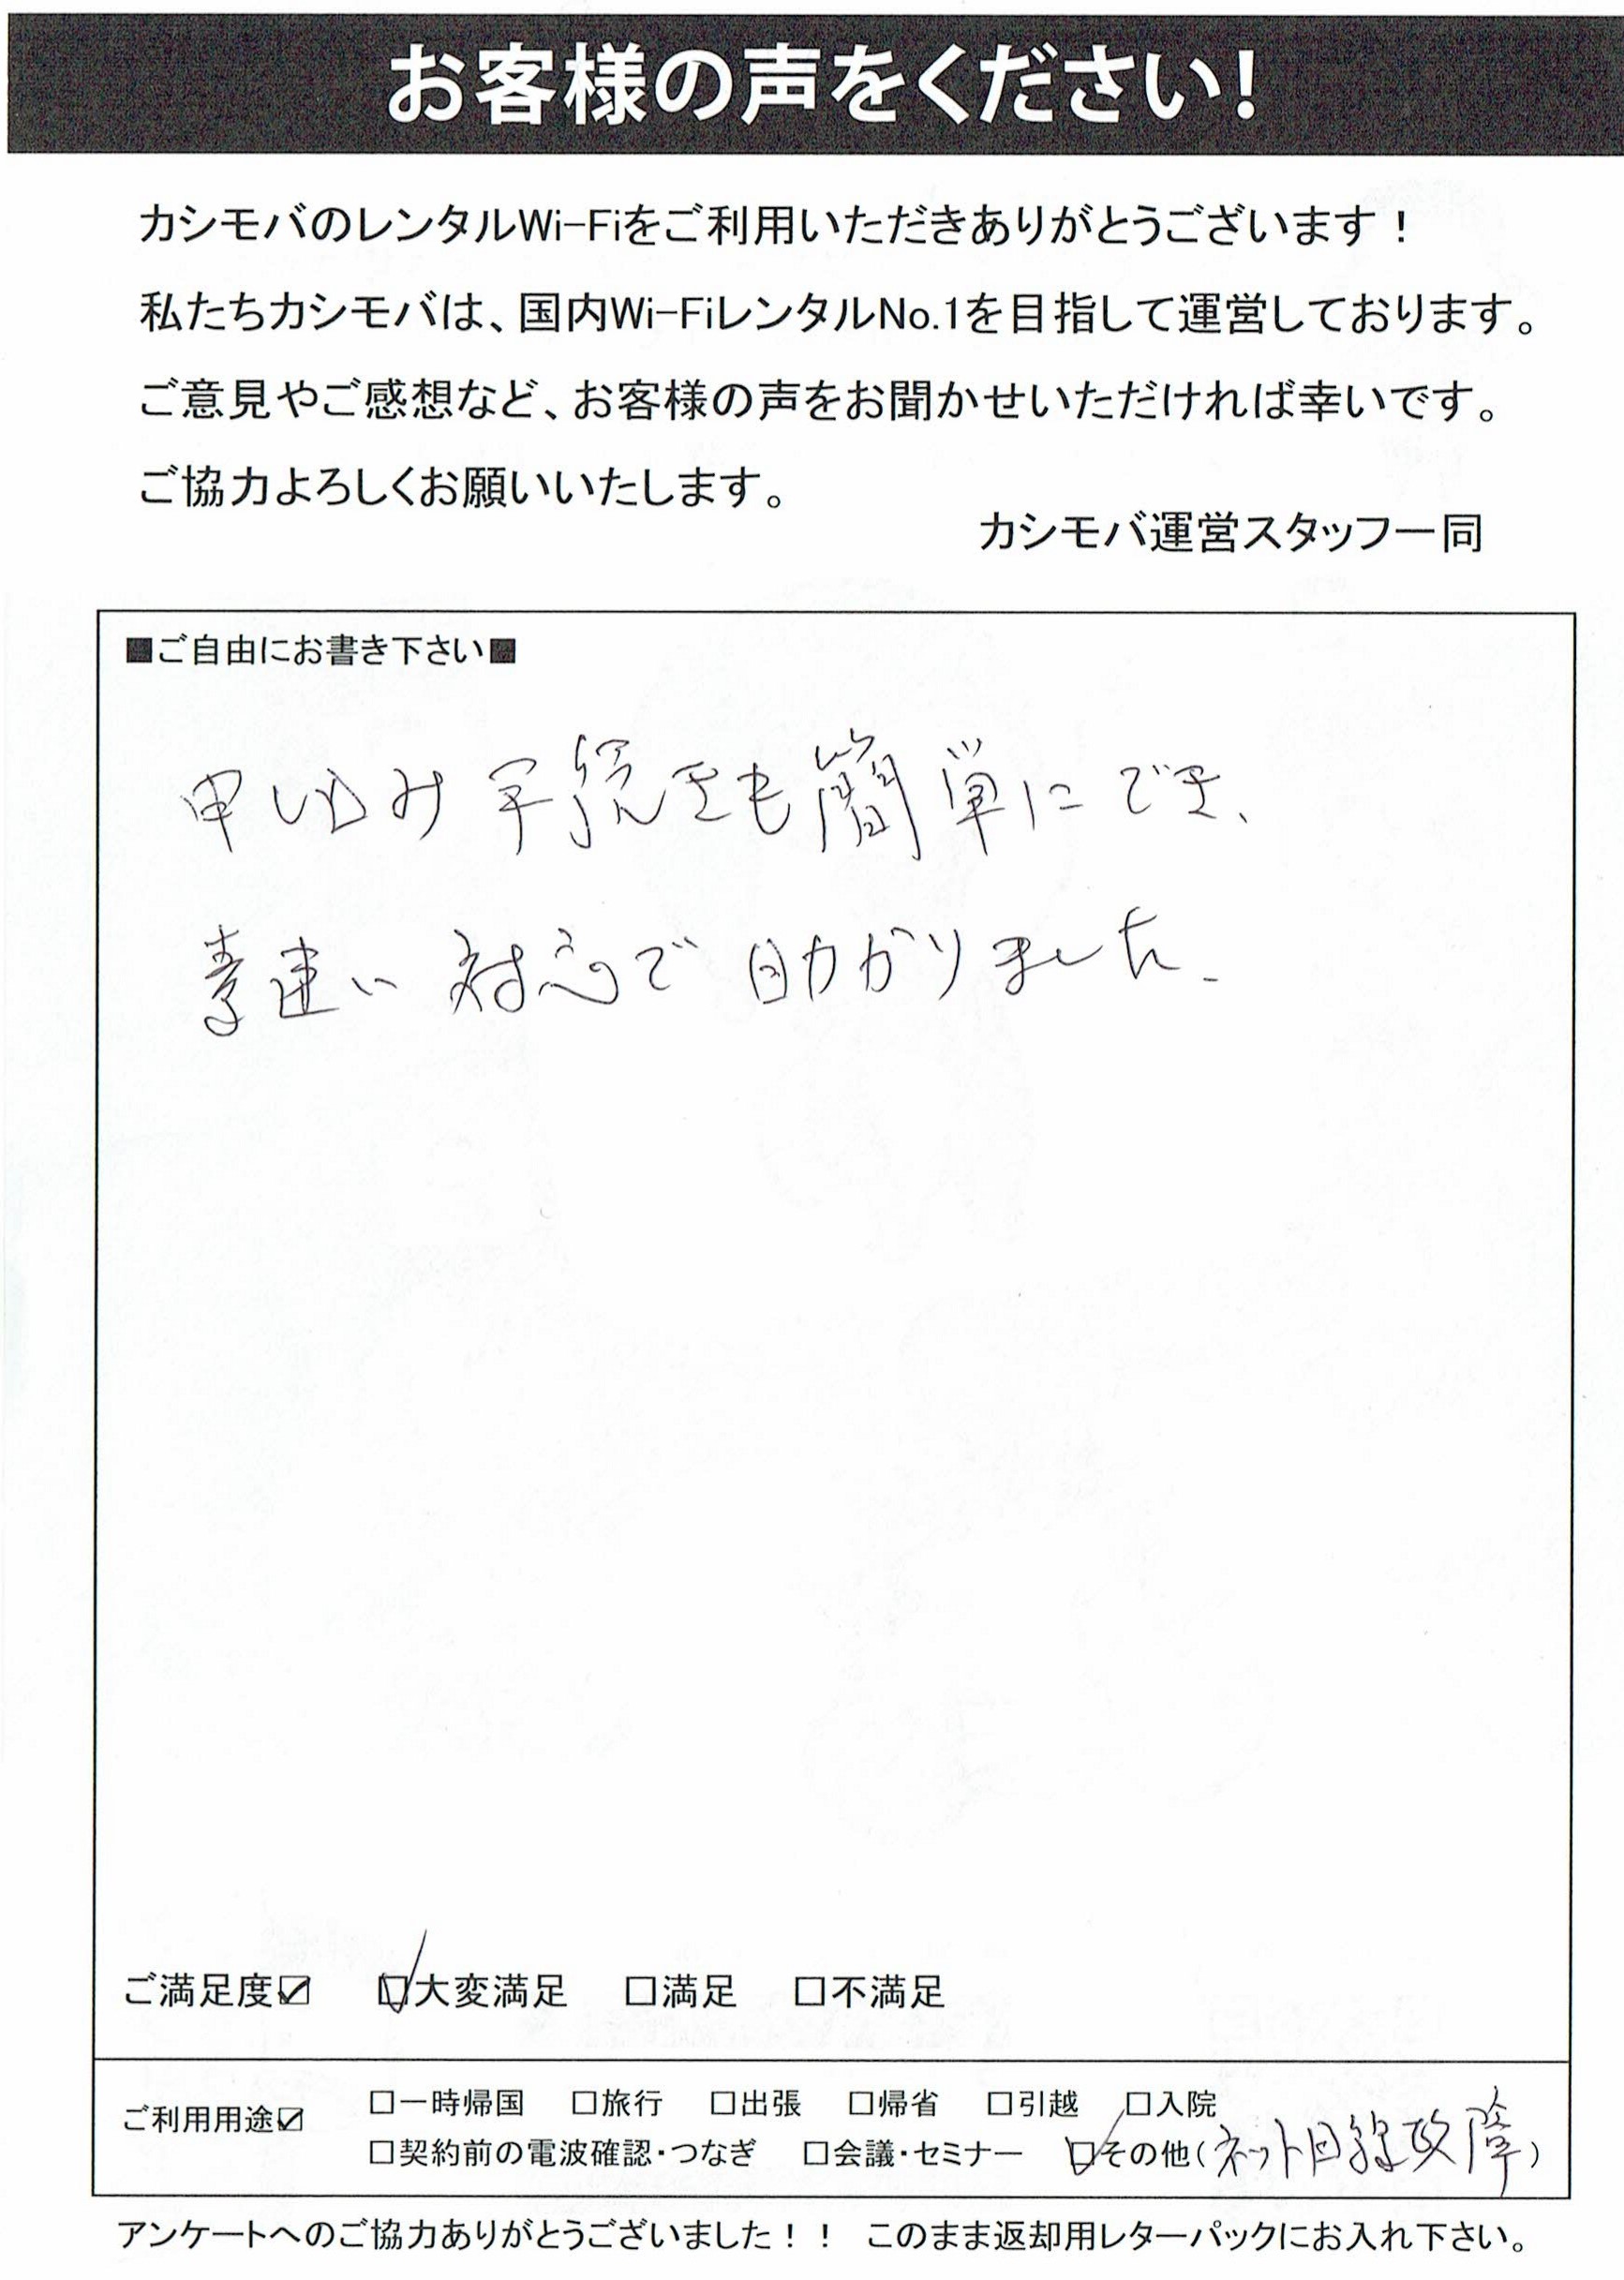 お客様の声をください!
カシモバのレンタルWi-Fiをご利用いただきありがとうございます！
私たちカシモバは、国内Wi-FiレンタルNo.1を目指して運営しております。
ご意見やご感想など、お客様の声をお聞かせいただければ幸いです。
ご協力よろしくお願いいたします。
カシモバ運営スタッフ一同
■ご自由にお書き下さい■
申し込み手続きも簡単にでき、
素速い対応で助かりました。
ご満足度☑ ☑大変満足 □満足 □不満足
ご利用用途☑ □一時帰国 □旅行 □出張 □帰省 □引越 □入院
□契約前の電波確認・つなぎ □会議・セミナー ☑その他(ネット回線故障)
アンケートへのご協力ありがとうございました！！ このまま返却用レターパックにお入れ下さい。